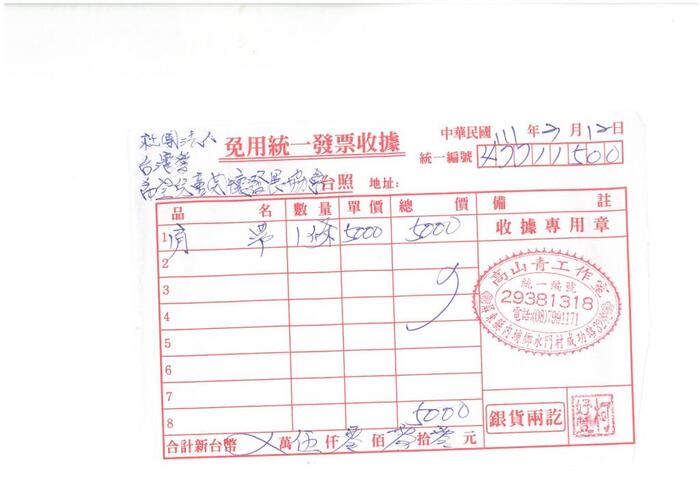 社團法人
台灣季
希望兒童關懷發展協會台照 地址：
免用統一發票收據
中華民國 111 年 3 月 12 日
統一編號 47711500
品 名 數量 單價 總 價 備 註
1 肩 帶 1條 5000 5000
2
3
4
5
6
7
8 5000
合計新台幣 ㄨ 萬 伍 仟 零 佰 零 拾 零 元
收據專用章
高山青工作室
統一編號
29381318
電話:(08)7991171
銀貨兩訖